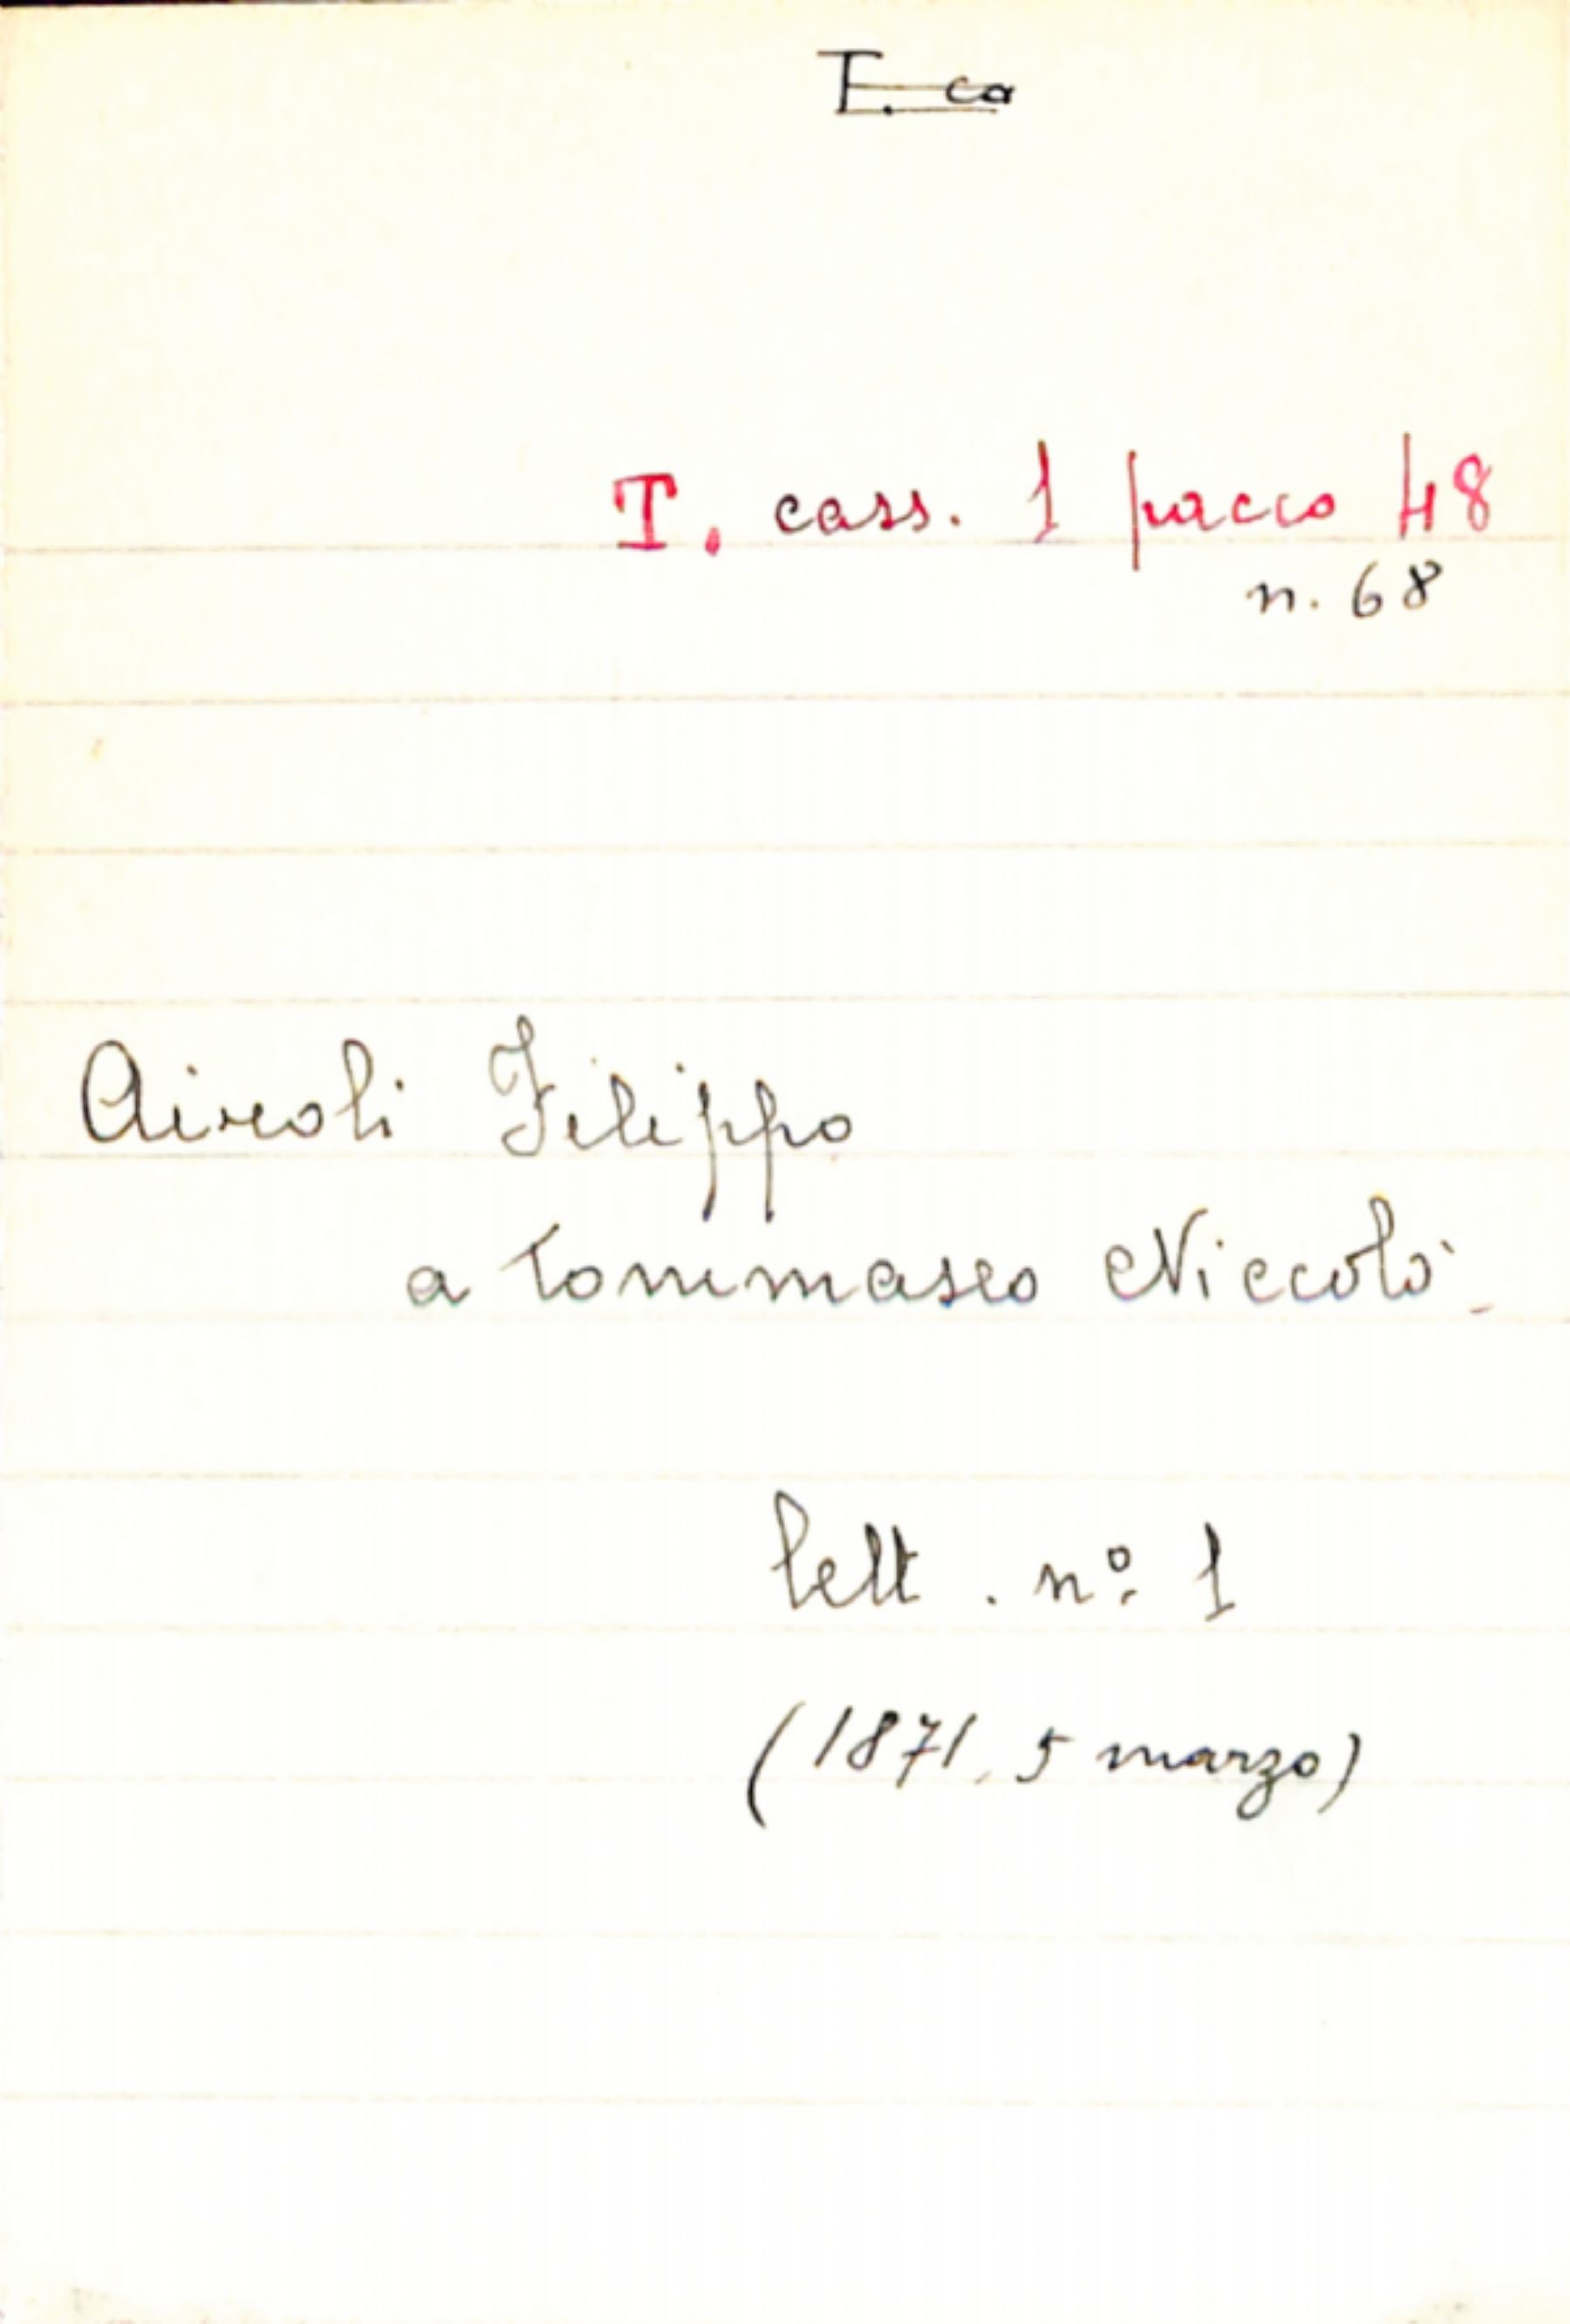 T. cass. 1 pacco 48
n. 68
Airoli Filippo
a Tommaseo Niccolò
lett. nº 1
(1871, 5 marzo)